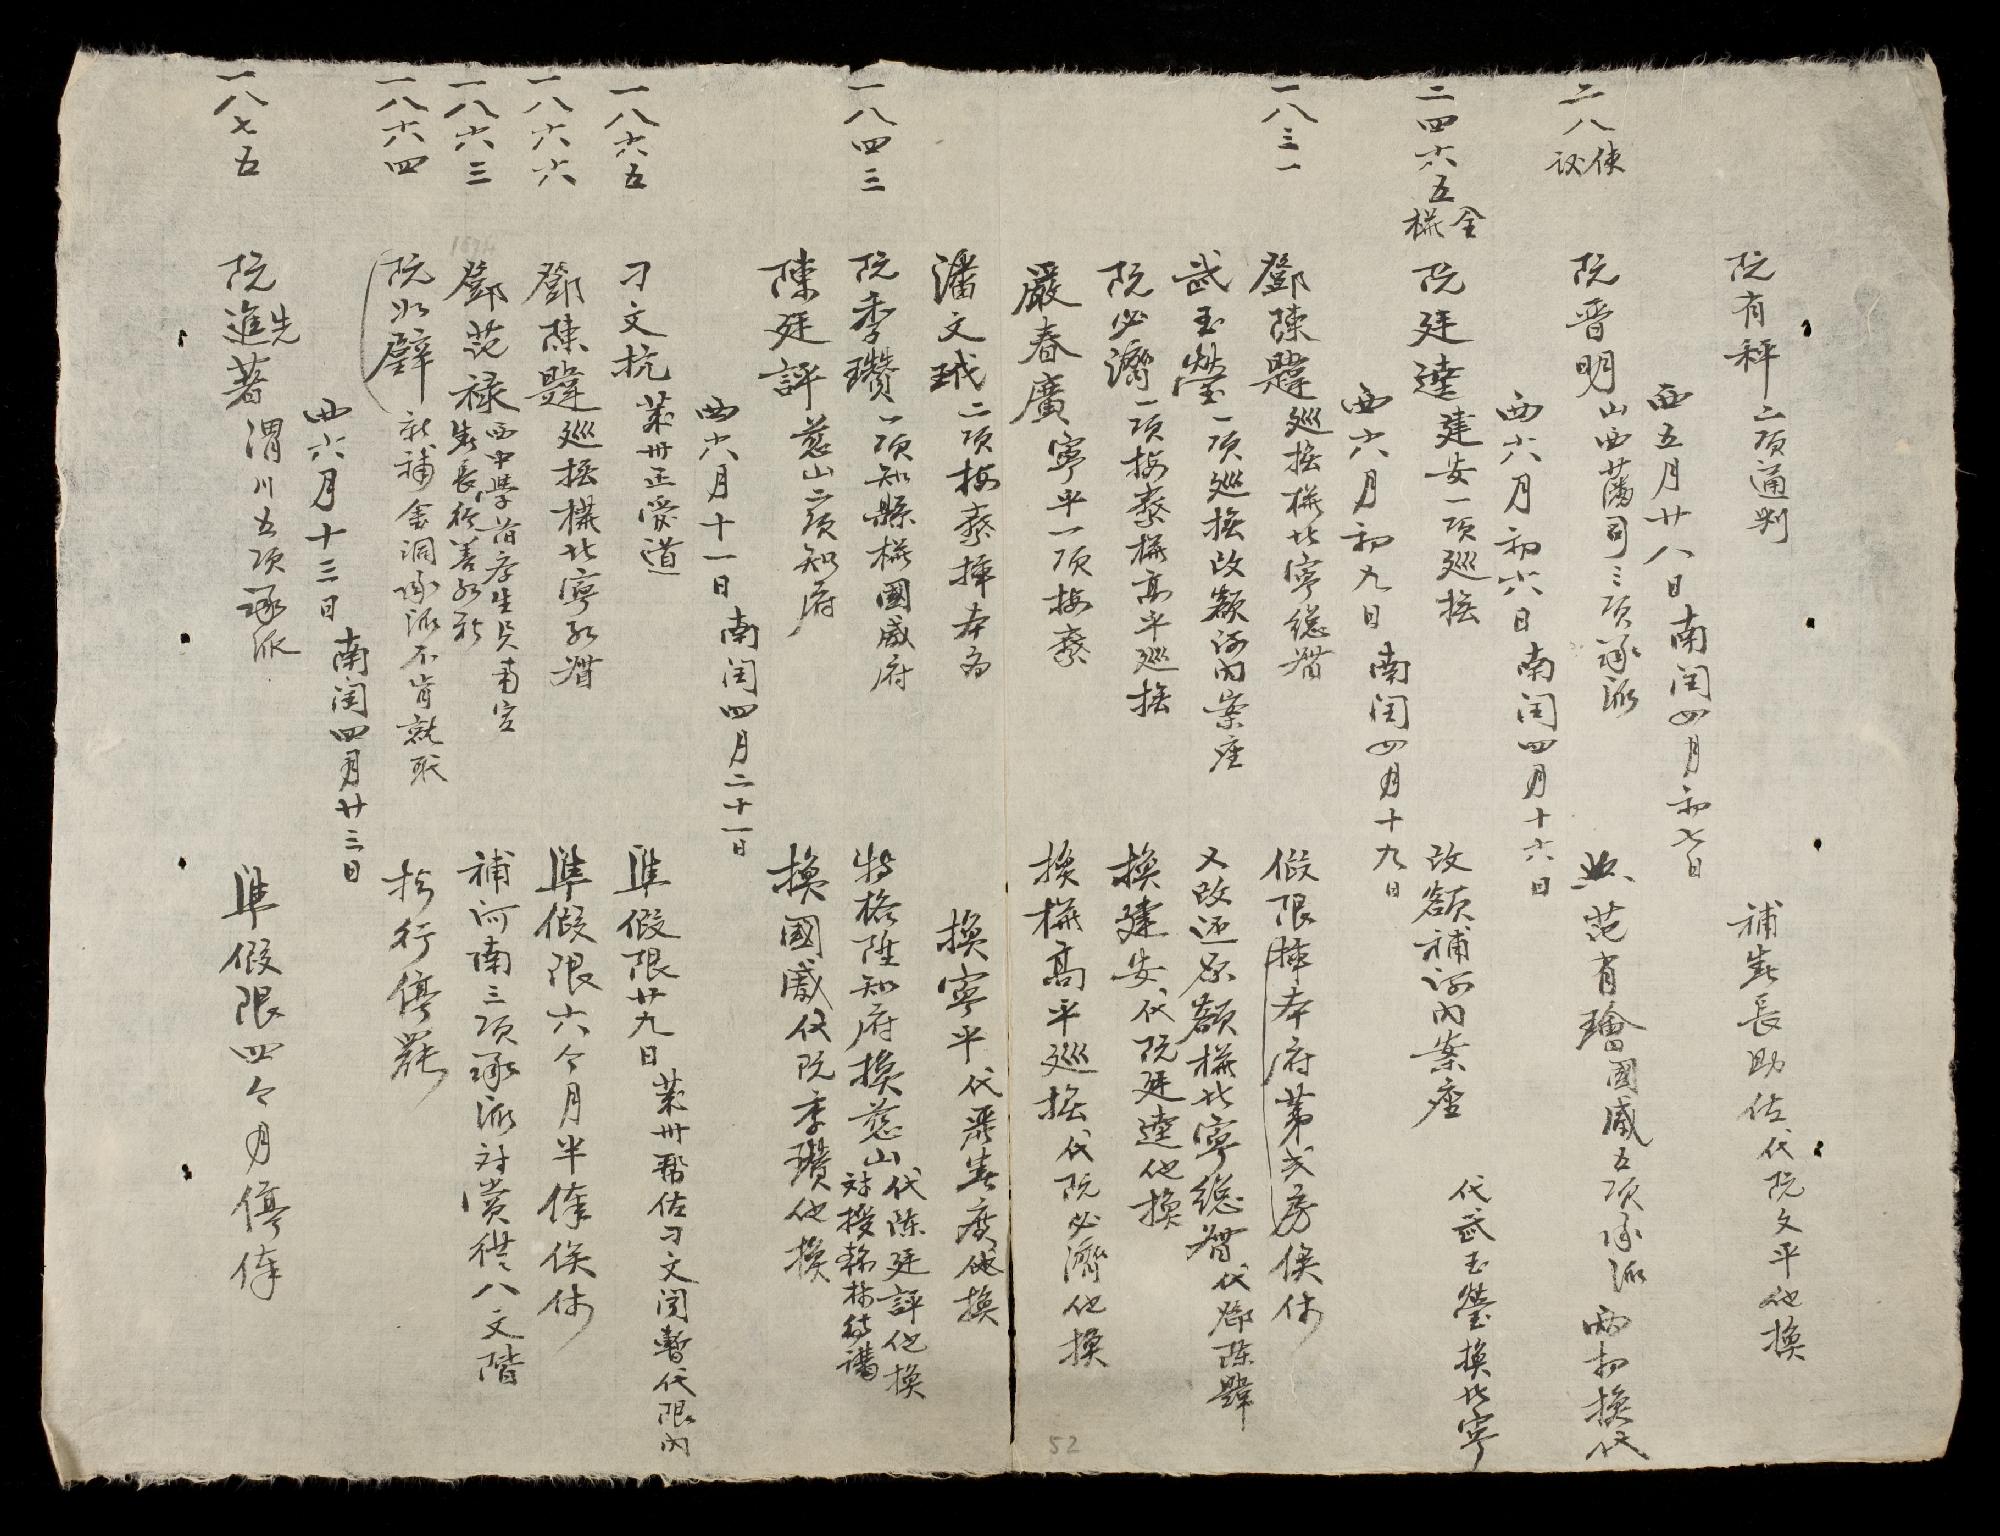 阮有秤二項通判 補裁長助佐代阮文平他換
西五月廿八日南閏四月初七日
二八使 阮晋明山西藩司三項承派 與范有璯國威五項承派兩相換代
西六月初六日南閏四月十六日
二四六五全權 阮廷達建安一項巡撫 改額補河內案座 代武玉瑩換北寧
西六月初九日南閏四月十九日
一八三一 鄧陳韙巡撫權北寧總督 假限擇本府第弍房俟休
武玉瑩一項巡撫改額河內案座 又改还原額權北寧總督代鄧陳韙
阮必濟一項按察權高平巡撫 換建安代阮廷達他換
嚴春廣寧平一項按察 換權高平巡撫代阮必濟他換
潘文珹二項按察擇本 換寧平代嚴春廣他換
一八四三 阮季瓚一項知縣權國威府 特格陞知府換慈山代陳廷評他換
陳廷評慈山二項知府 換國威代阮季瓚他換
西六月十一日南閏四月二十一日
一八六五 刁文抗萊州正管道 準假限廿九日萊州幫佐刁文閔暫代限內
一八六六 鄧陳韙巡撫權北寧總督 準假限六个月半俸俟休
一八六三 鄧范祿西中學 補河南三項承派 八文階
一八六四 阮 璧新補金洞承派不肯就职 行停罷
西六月十三日南閏四月廿三日
一八七五 阮進著先渭川五項承派 準假限四个月停俸
52